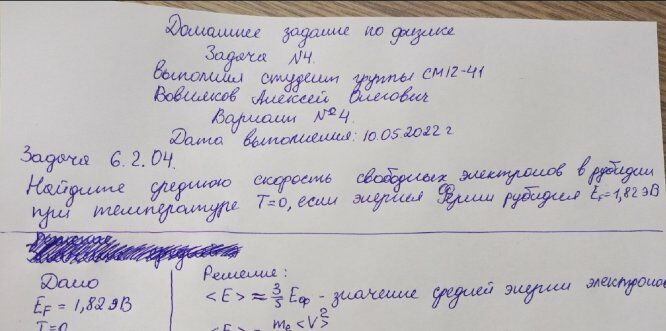 Домашнее задание по физике
Задача №4.
Выполнил студент группы СМ12-41
Вовиляков Алексей Олегович
Вариант №4.
Дата выполнения: 10.05.2022 г
Задача 6.2.04.
Найдите среднюю скорость свободных электронов в рубидии
при температуре T=0, если энергия Ферми рубидия E_F=1,82 эВ
Дано
E_F = 1,82 эВ
T=0
Решение:
<E> ≈ 3/5 E_ф - значение средней энергии электронов
<E> = m_e <V>²